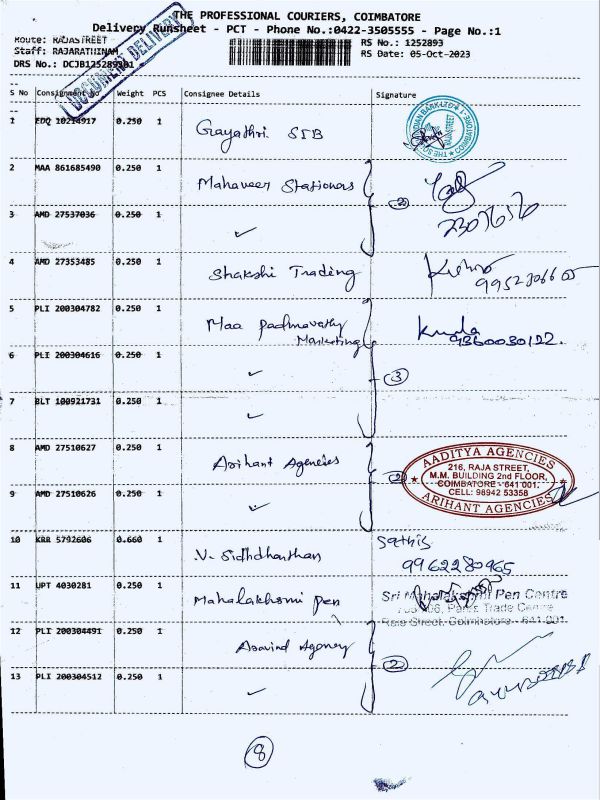 THE PROFESSIONAL COURIERS, COIMBATORE
Delivery Runsheet - PCT - Phone No.:0422-3505555 - Page No.:1
Route: RAJASTREET
RS No.: 1252893
Staff: RAJARATHINAM
RS Date: 05-Oct-2023
DRS No.: DCJB125289301
DOCUMENT DELIVERY
S No Consignment No Weight PCS Consignee Details Signature
1 EDQ 10214917 0.250 1 Gayathri SIB
2 MAA 861685490 0.250 1 Mahaveer Stationors 2
2307656
3 AMD 27537036 0.250 1 ✓
4 AMD 27353485 0.250 1 Shakshi Trading
5 PLI 200304782 0.250 1 Maa Padmavathy
Marketing
9360030122.
6 PLI 200304616 0.250 1 ✓
3
7 BLT 100921731 0.250 1 ✓
8 AMD 27510627 0.250 1 Arihant Agencies 2
AADITYA AGENCIES
216, RAJA STREET,
M.M. BUILDING 2nd FLOOR,
COIMBATORE - 641 001.
CELL: 98942 53358
ARIHANT AGENCIES
9 AMD 27510626 0.250 1 ✓
10 KRR 5792606 0.660 1 V. Sidhdharthan Sathis
9962280965
11 UPT 4030281 0.250 1 Mahalakhsmi Pen
Sri Mahalakshmi Pen Centre
Raja Street, Coimbatore - 641 001.
12 PLI 200304491 0.250 1 Aravind Agency
2
13 PLI 200304512 0.250 1 ✓
8